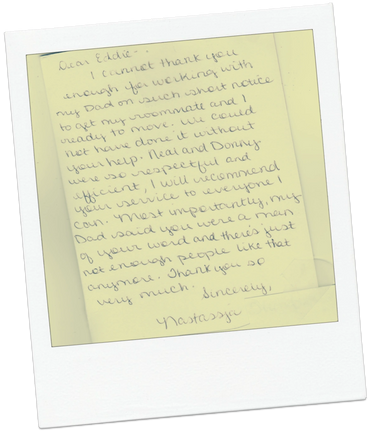 Dear Eddie -
I cannot thank you
enough for working with
my Dad on such short notice
to get my roommate and I
ready to move. We could
not have done it without
your help. Neal and Donny
were so respectful and
efficient, I will recommend
your service to everyone I
can. Most importantly, my
Dad said you were a man
of your word and there's just
not enough people like that
anymore. Thank you so
very much.
Sincerely,
Nastassja